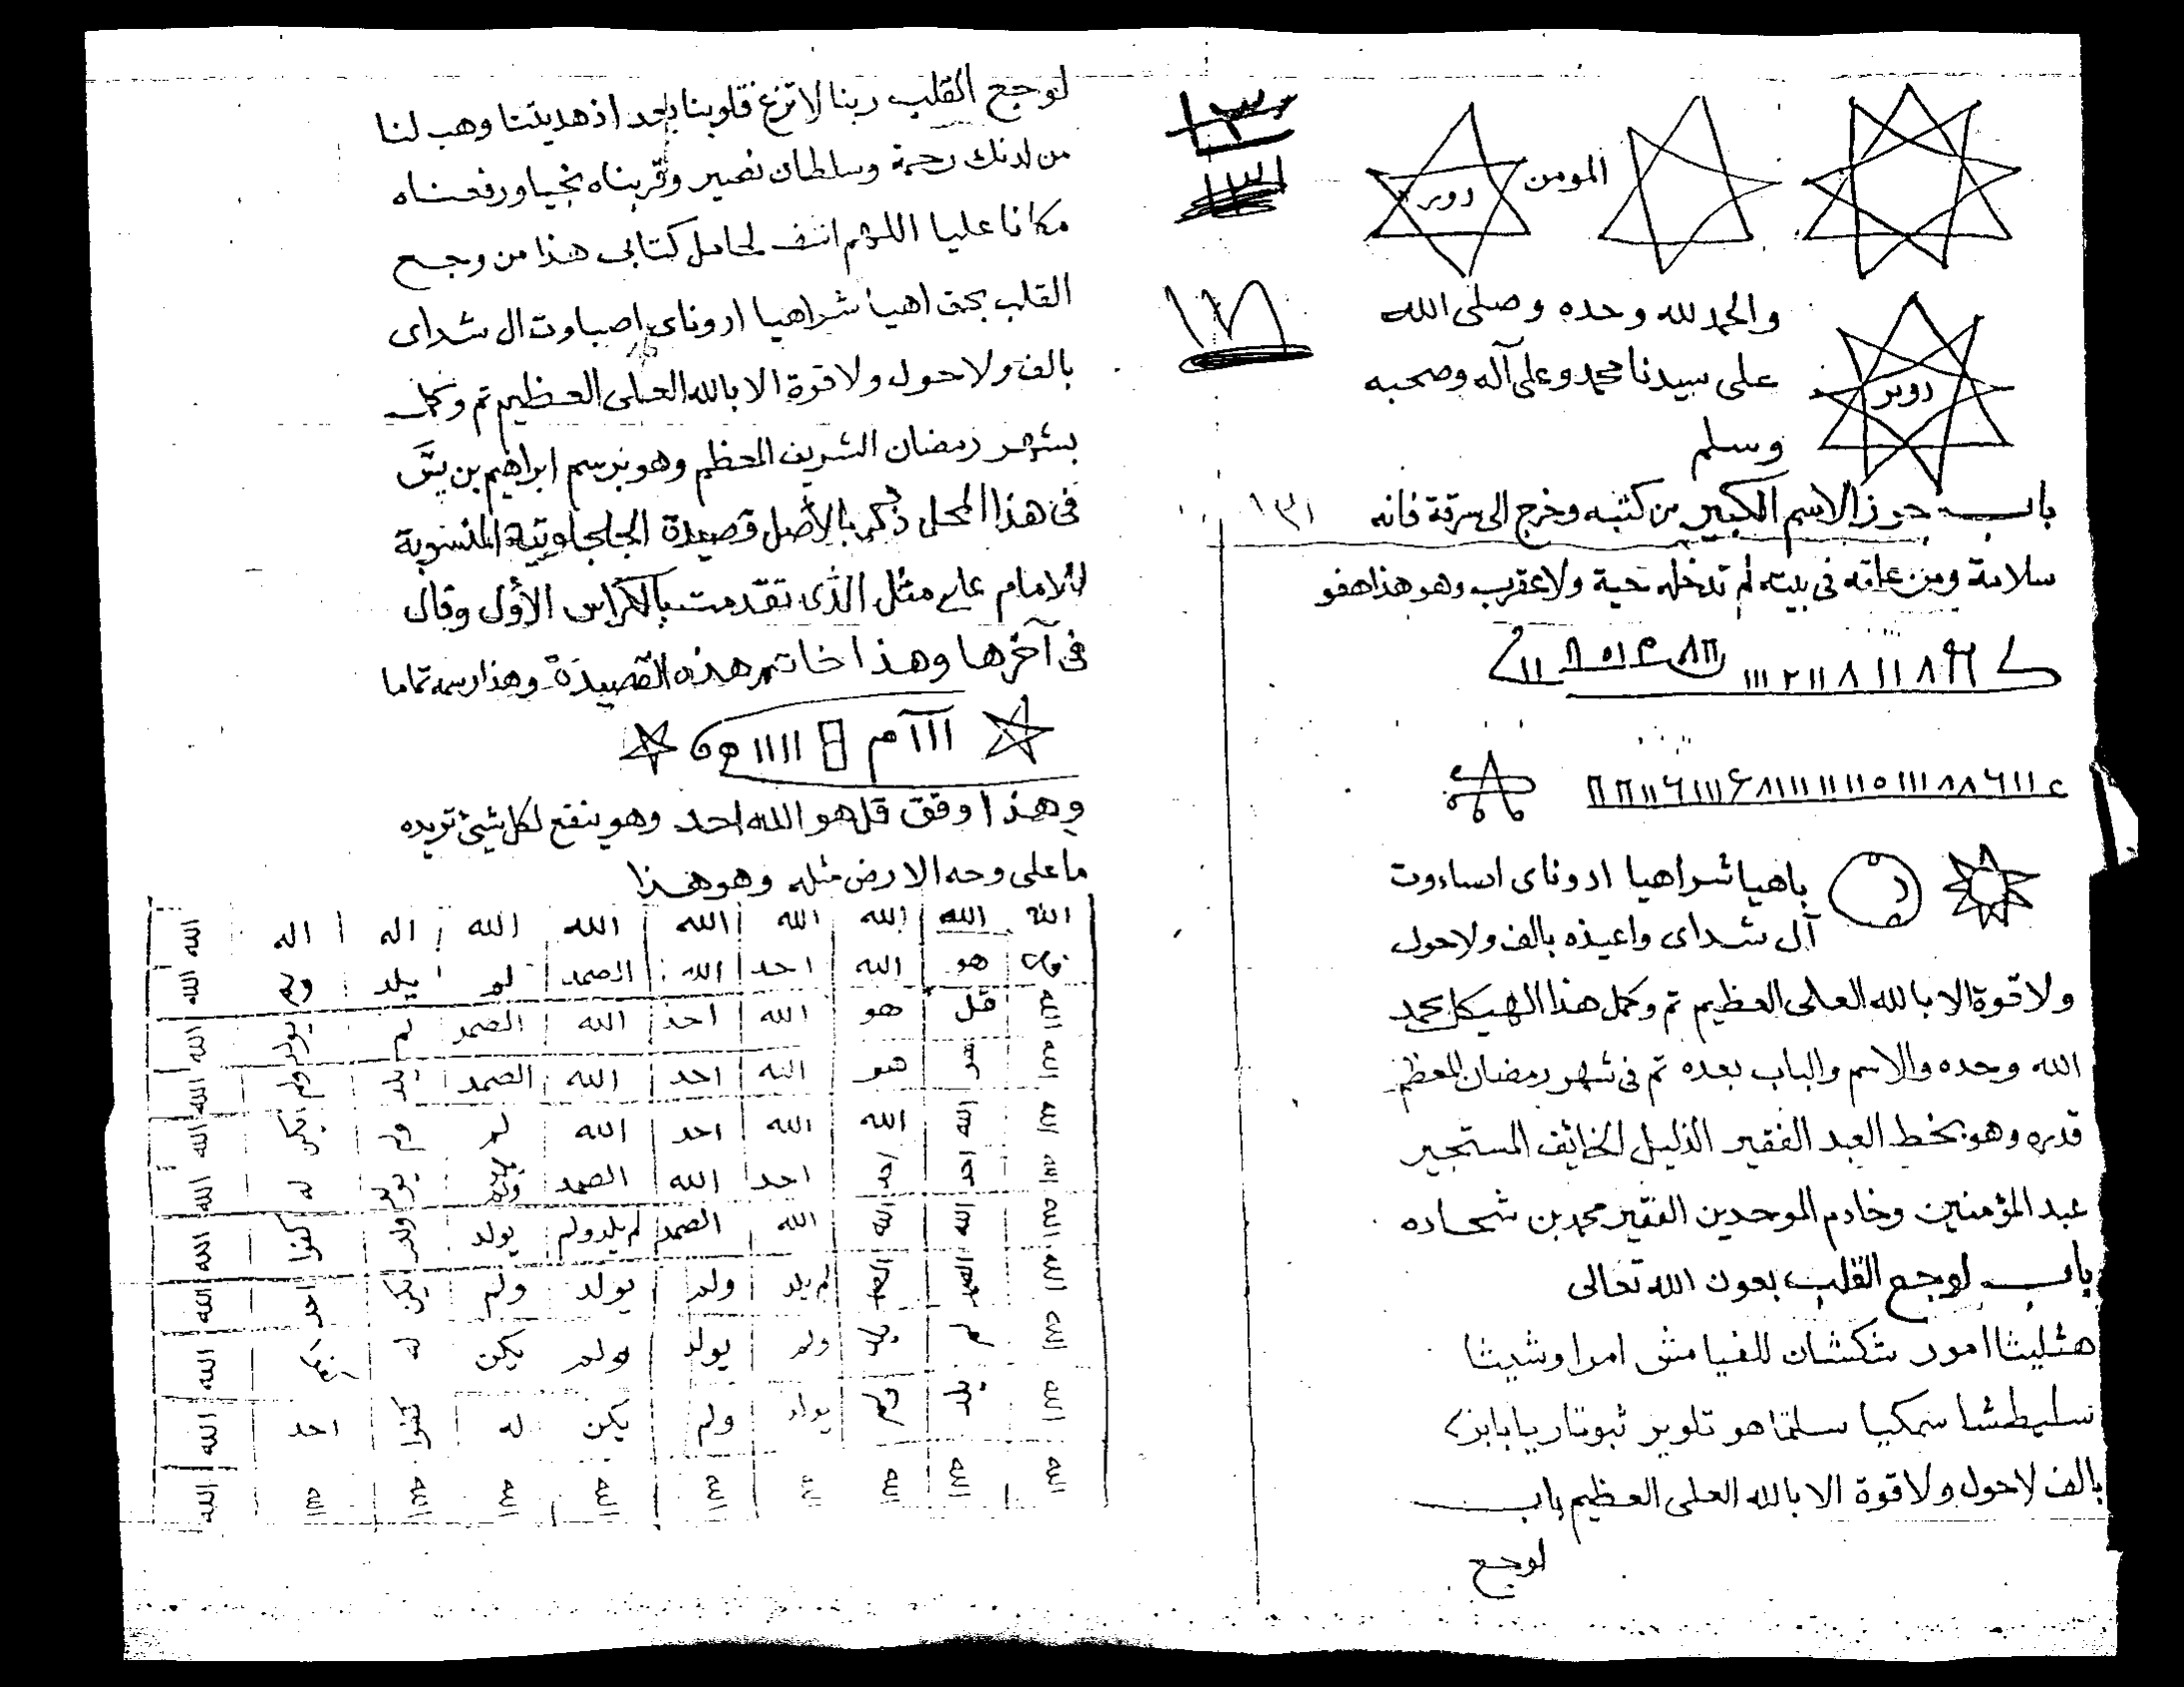 المومن
دوبر
والحمد لله وحده وصلى الله
على سيدنا محمد وعلى آله وصحبه
دوبر
وسلم
باب حرز الاسم الكبير من كتبه وخرج الى سرقة فانه
١٣١
سلامة ومن علقه فى بيته لم تدخله حية ولا عقرب وهو هذا هفو
ياهيا شراهيا ادوناى اصباوت
آل شداى واعيذه بالف ولاحول
ولا قوة الا بالله العلى العظيم تم وكمل هذا الهيكل بحمد
الله وحده والاسم والباب بعده تم فى شهر رمضان المعظم
قدره وهو بخط العبد الفقير الذليل الخائف المستجير
عبد المؤمنين وخادم الموحدين الفقير محمد بن شحاده
باب لوجع القلب بعون الله تعالى
هثليثا امور شكشان للغيا مش امرا وشيثا
سليطشا سمكيا سلتما هو تلوبر ثبوتاريا
بالف لاحول ولا قوة الا بالله العلى العظيم باب
لوجع
لوجع القلب ربنا لا تزغ قلوبنا بعد اذ هديتنا وهب لنا
من لدنك رحمة وسلطان نصير وقربناه نجيا ورفعناه
مكانا عليا اللهم اشف لحامل كتابى هذا من وجع
القلب بحق اهيا شراهيا ادوناى اصباوت ال شداى
بالف ولا حول ولا قوة الا بالله العلى العظيم تم وكمل
بشهر رمضان الشريف المعظم وهو برسم ابراهيم بن
فى هذا المحل ذكر بالأصل قصيدة الجلجلوتية المنسوبة
للامام على مثل الذى تقدمت بالكراس الأول وقال
فى آخرها وهذا خاتم هذه القصيدة وهذا رسمه تماما
وهذا وفق قل هو الله احد وهو ينفع لكل شئ تريده
ما على وجه الارض مثله وهو هذا
الله الله الله الله الله الله الله اله اله الله
هو الله احد الله الصمد لم يلد ولم الله
الله قل هو الله احد الله الصمد لم يولد الله
الله هو هو الله احد الله الصمد يلد ولم الله
الله الله الله الله احد الله لم ولم يكن الله
الله احد احد احد الله الصمد يولد له الله
الله الله الله الله الصمد لم يلد ولم يولد ولم كفوا الله
الله الصمد الصمد لم يلد ولم يولد ولم يكن احد الله
الله لم يلد ولم يولد ولم يكن له الله
الله يلد ولم يولد ولم يكن له كفوا احد الله
الله الله الله الله الله الله الله الله الله الله